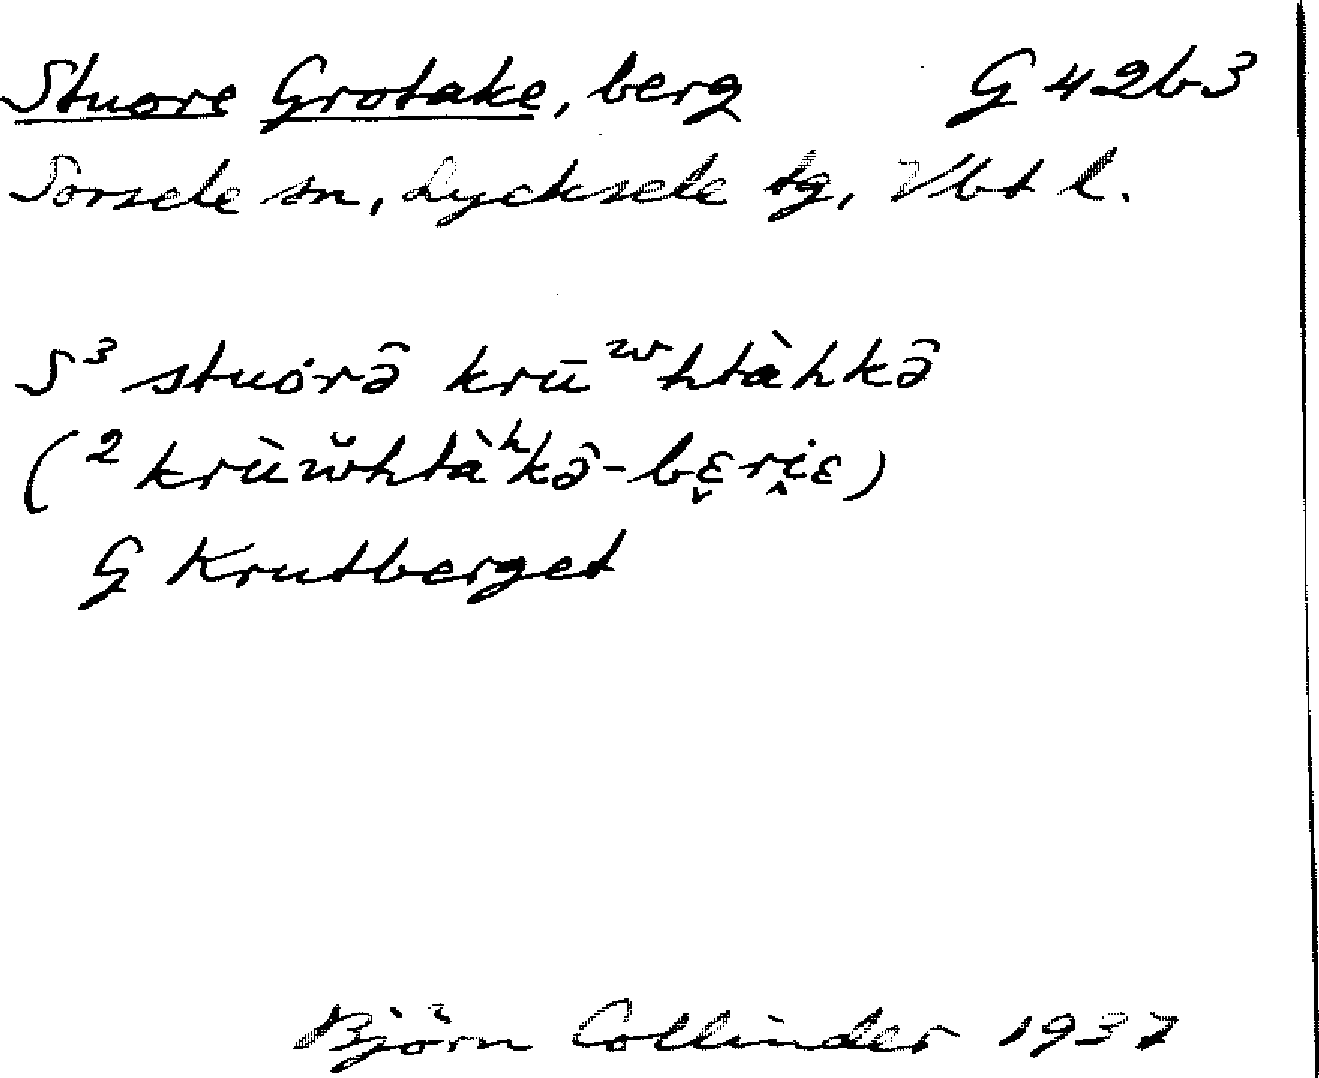 Stuore Grotake, berg G 42b3
Sorsele sn, Lycksele tg, Vbt l.
S³ stuȯrə̑ krūʷhtàhkə̑
(² krùw̆htàʰkə̑-bɛ̬ri̭ɛ)
G Krutberget
Björn Collinder 1937